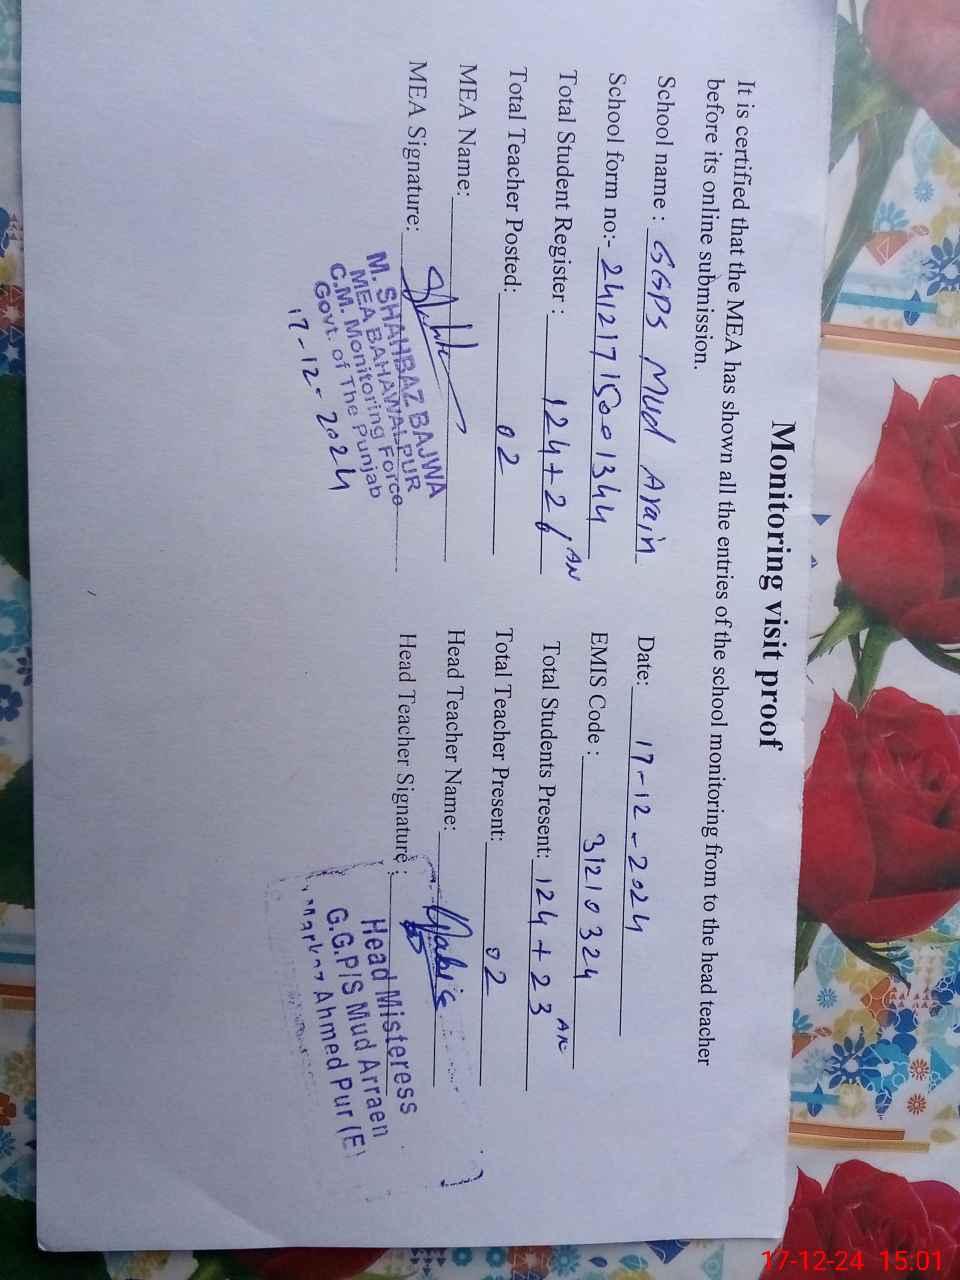 Monitoring visit proof
It is certified that the MEA has shown all the entries of the school monitoring from to the head teacher
before its online submission.
School name : GGPS Mud Arain
Date: 17-12-2024
School form no:- 24121715001344
EMIS Code : 31210324
Total Student Register : 124+26 AN
Total Students Present: 124+23 AN
Total Teacher Posted: 02
Total Teacher Present: 02
MEA Name:
Head Teacher Name:
MEA Signature:
Head Teacher Signature :
M. SHAHBAZ BAJWA
MEA BAHAWALPUR
C.M. Monitoring Force
Govt. of The Punjab
17-12-2024
Head Misteress
G.G.P/S Mud Arraen
Markaz Ahmed Pur (E)
17-12-24 15:01